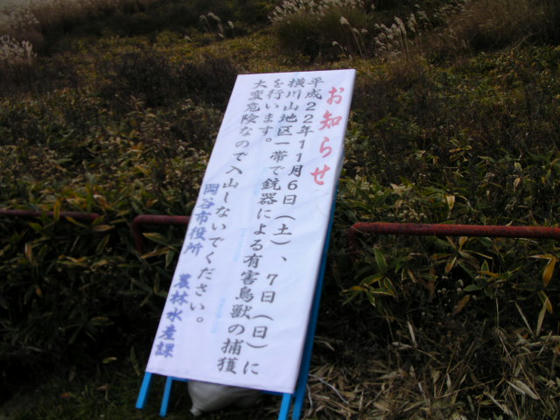 お知らせ
平成22年11月6日(土)、7日(日)に
横川山地区一帯で銃器による有害鳥獣の捕獲
を行います。
大変危険なので入山しないでください。
岡谷市役所 農林水産課